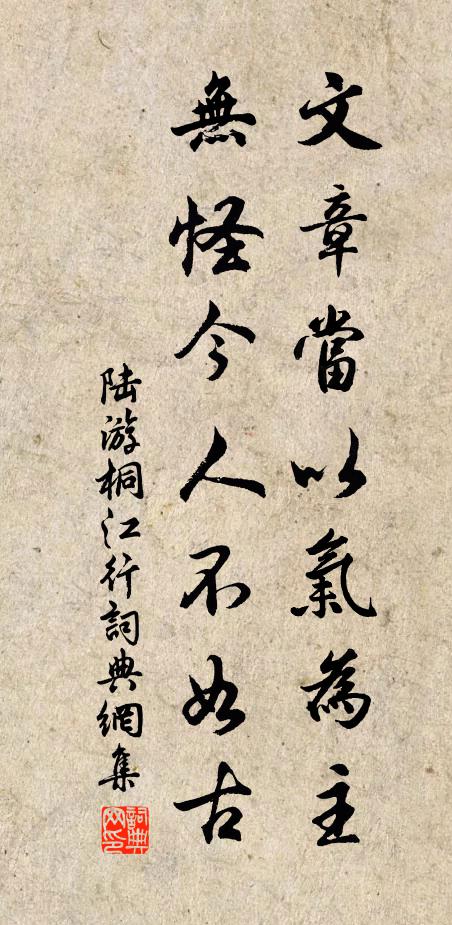 文章當以氣為主
無怪今人不如古
陆游桐江行詞典網集
詞典網印